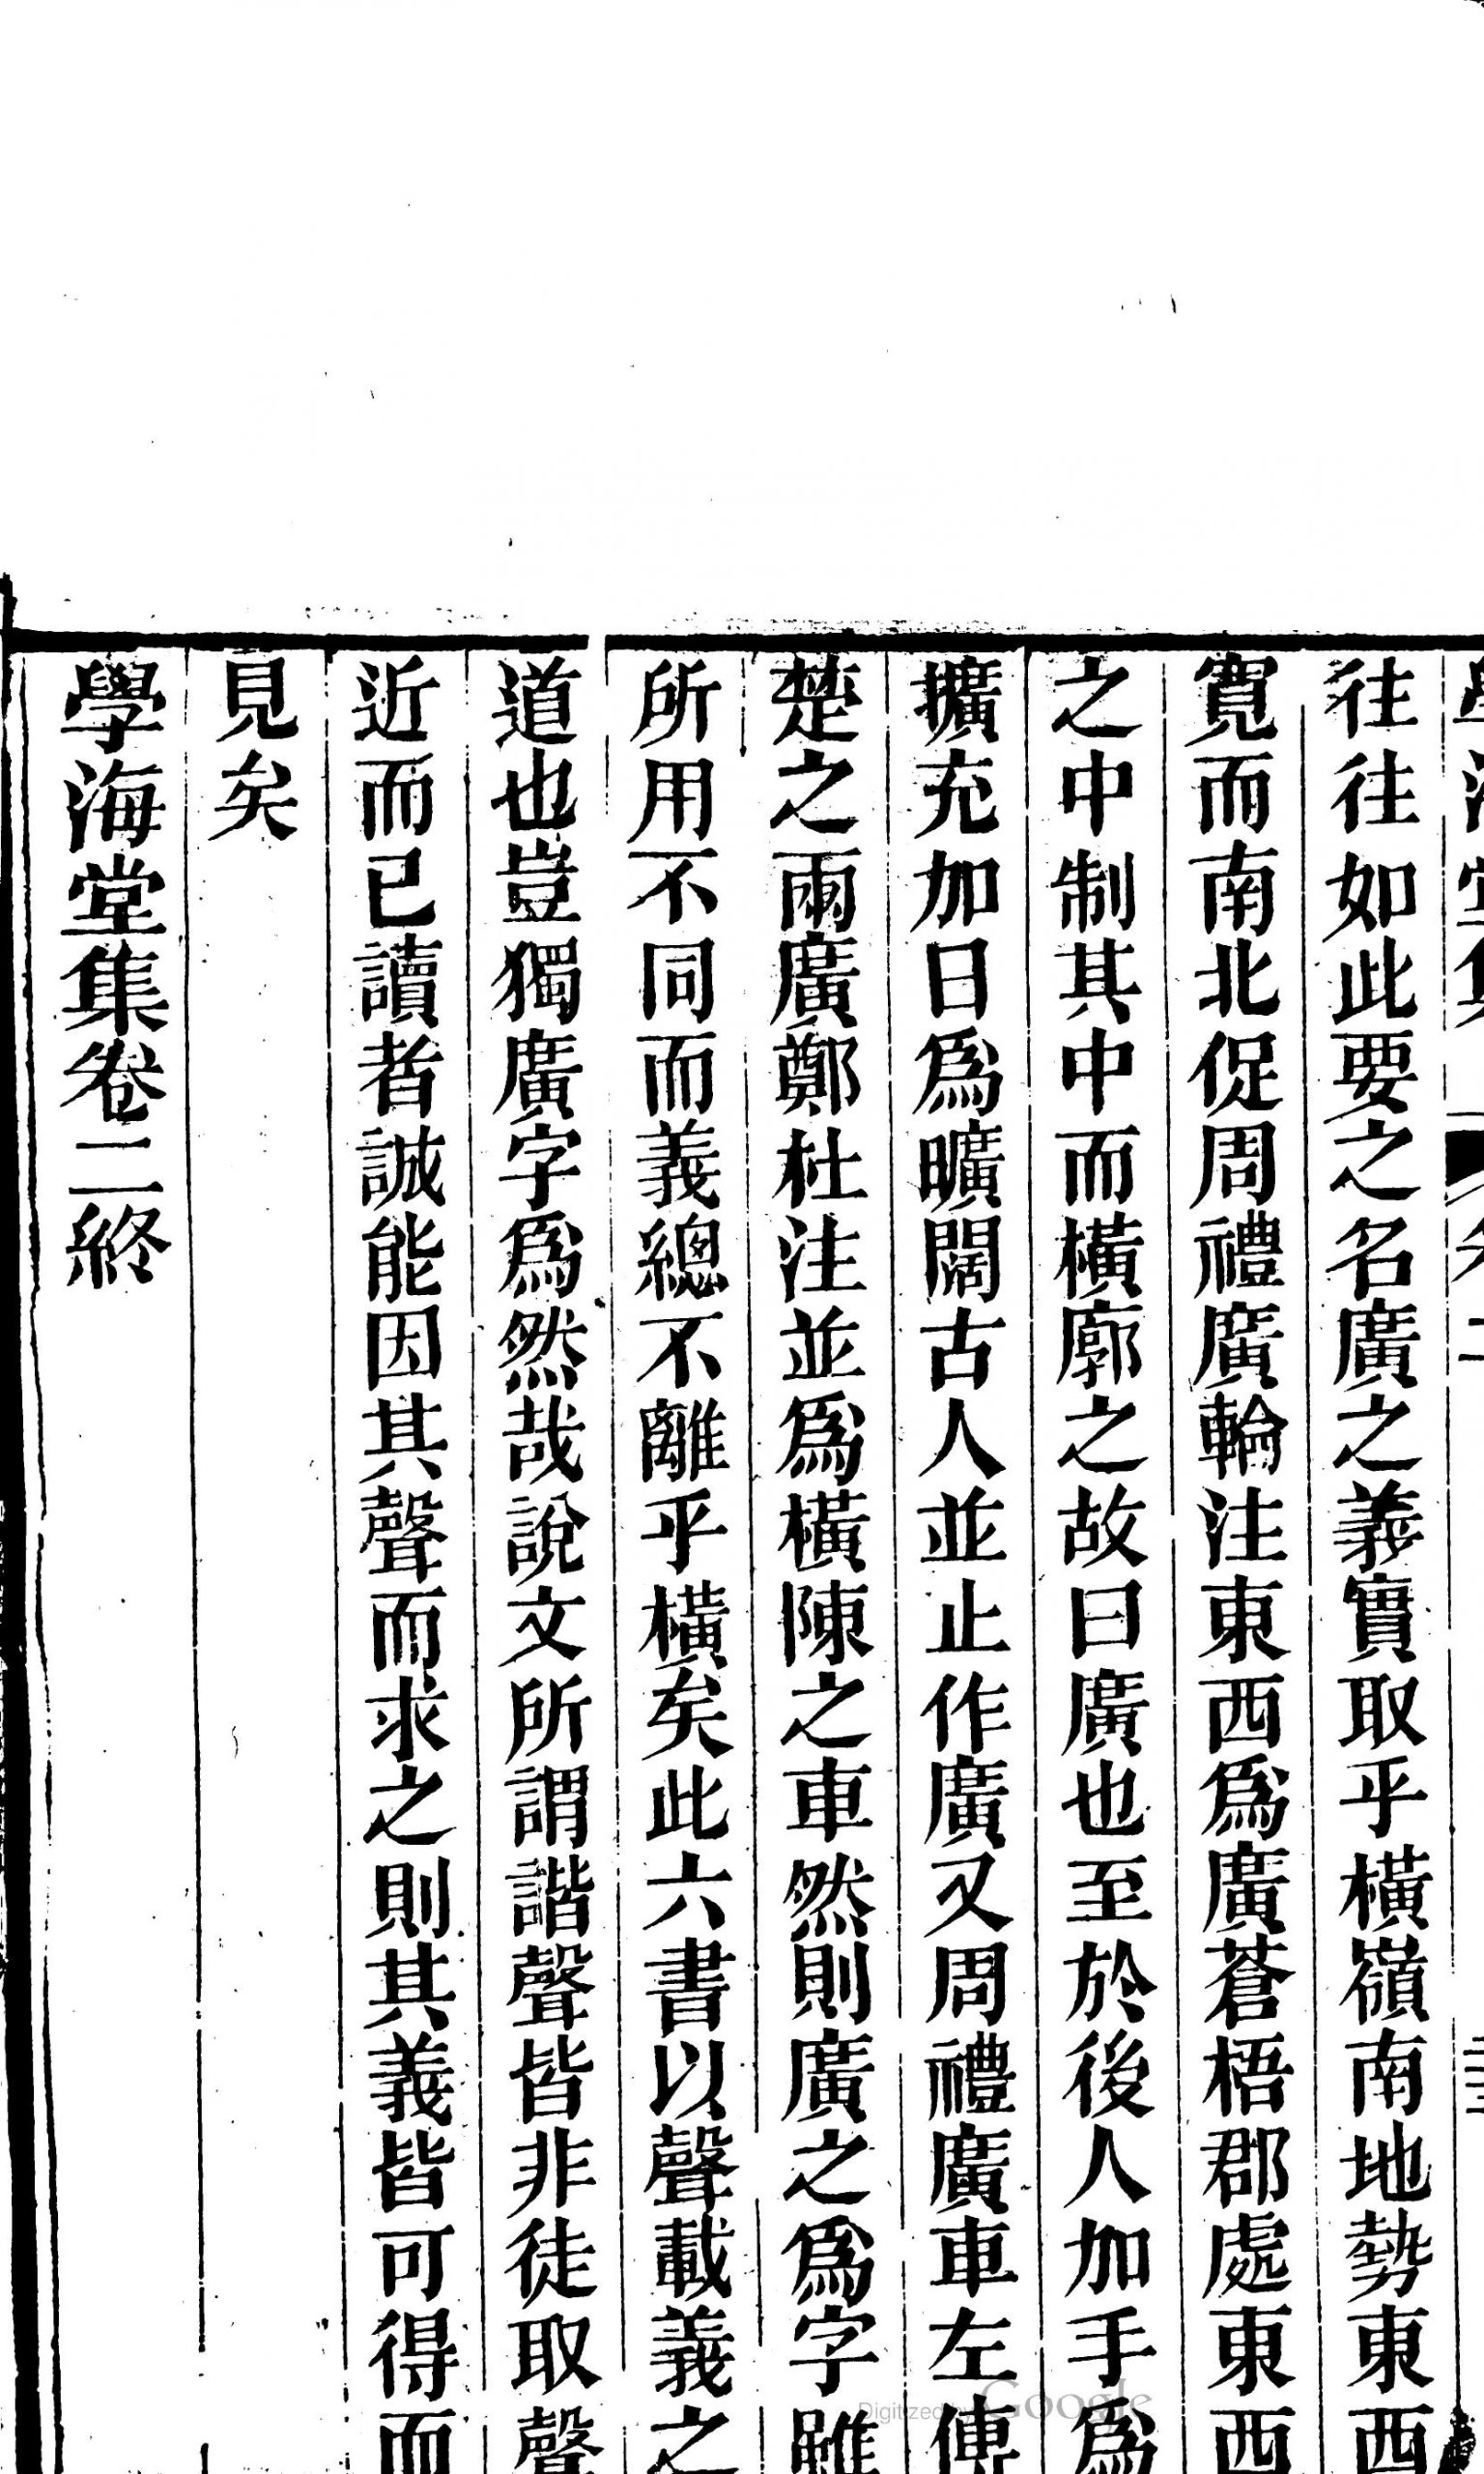 往往如此要之名廣之義實取乎橫嶺南地勢東西
寛而南北促周禮廣輪注東西爲廣蒼梧郡處東西
之中制其中而橫廓之故曰廣也至於後人加手爲
擴充加日爲曠闊古人並止作廣又周禮廣車左傳
楚之兩廣鄭杜注並爲橫陳之車然則廣之爲字雖
所用不同而義總不離乎橫矣此六書以聲載義之
道也豈獨廣字爲然哉說文所謂諧聲皆非徒取聲
近而已讀者誠能因其聲而求之則其義皆可得而
見矣
學海堂集卷二終
Digitized by Google